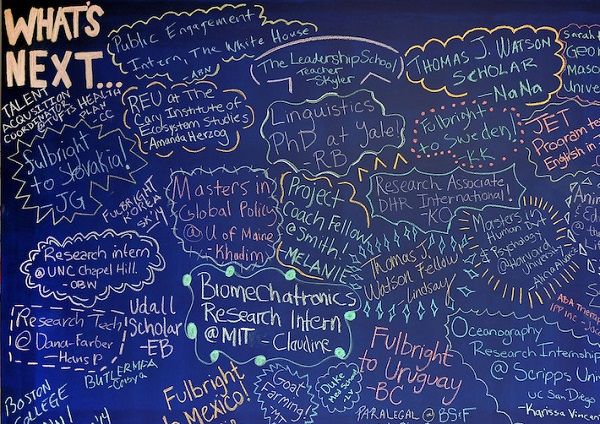 WHAT'S
NEXT...
Public Engagement
Intern, The White House
-ABN
The Leadership School
Teacher
-Skyler
THOMAS J. WATSON
SCHOLAR
-NaNa
Sarah
Geor
Mason
Univer
TALENT
ACQUISITION
COORDINATOR
@ TUFTS HEALTH
PLAN
-CC
REU at The
Cary Institute of
Ecosystem Studies
-Amanda Herzog
Linguistics
PhD at Yale!
-RB
Fulbright
to Sweden!
-KK
JET
Program te
English in
Fulbright
to Slovakia!
-JG
FULBRIGHT
KOREA
SK '14
Masters in
Global Policy
@ U of Maine
-Khadim
Project
Coach Fellow
@ Smith!
MELANIE
Research Associate
DHR International!
-KC
Masters in
Human Dvt
& Psychology
@ Harvard
University
Research intern
@ UNC Chapel Hill.
-OBW
Thomas J.
Watson Fellow
-Lindsay
Research Tech
@ Dana-Farber
-Hans P
Udall
Scholar
-EB
Biomechatronics
Research Intern
@ MIT -Claudine
Oceanography
Research Internship
@ Scripps
UC San Diego
-Karissa Vincent
Fulbright
to Uruguay
-BC
BUTLER MFA
BOSTON
COLLEGE
Fulbright
to Mexico!
Goat
Farming!
PARALEGAL @ BS&F